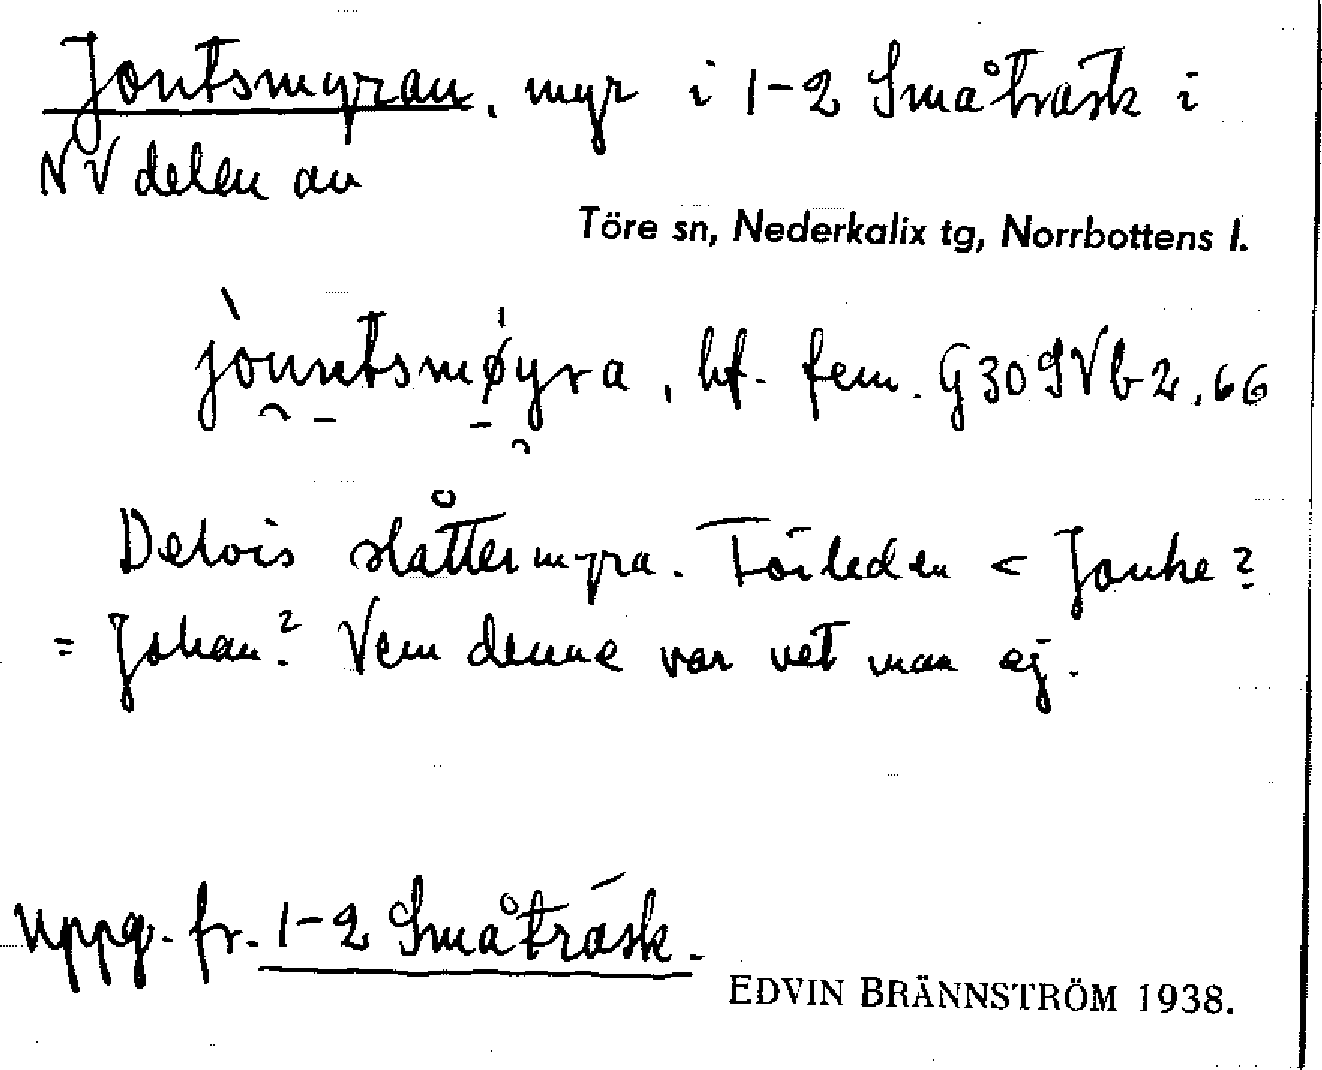 Jontsmyran, myr i 1-2 Småträsk i
NV delen av
Töre sn, Nederkalix tg, Norrbottens l.
bf. fem. G30SVb2,66
Delvis slåttermyra. Förleden < Jonke?
= Johan? Vem denne var vet man ej.
Uppg. fr. 1-2 Småträsk.
EDVIN BRÄNNSTRÖM 1938.